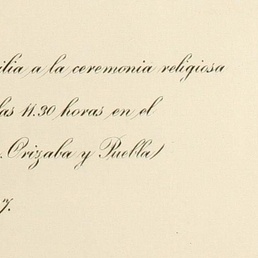 ilia a la ceremonia religiosa
las 11.30 horas en el
. Orizaba y Puebla)
7.